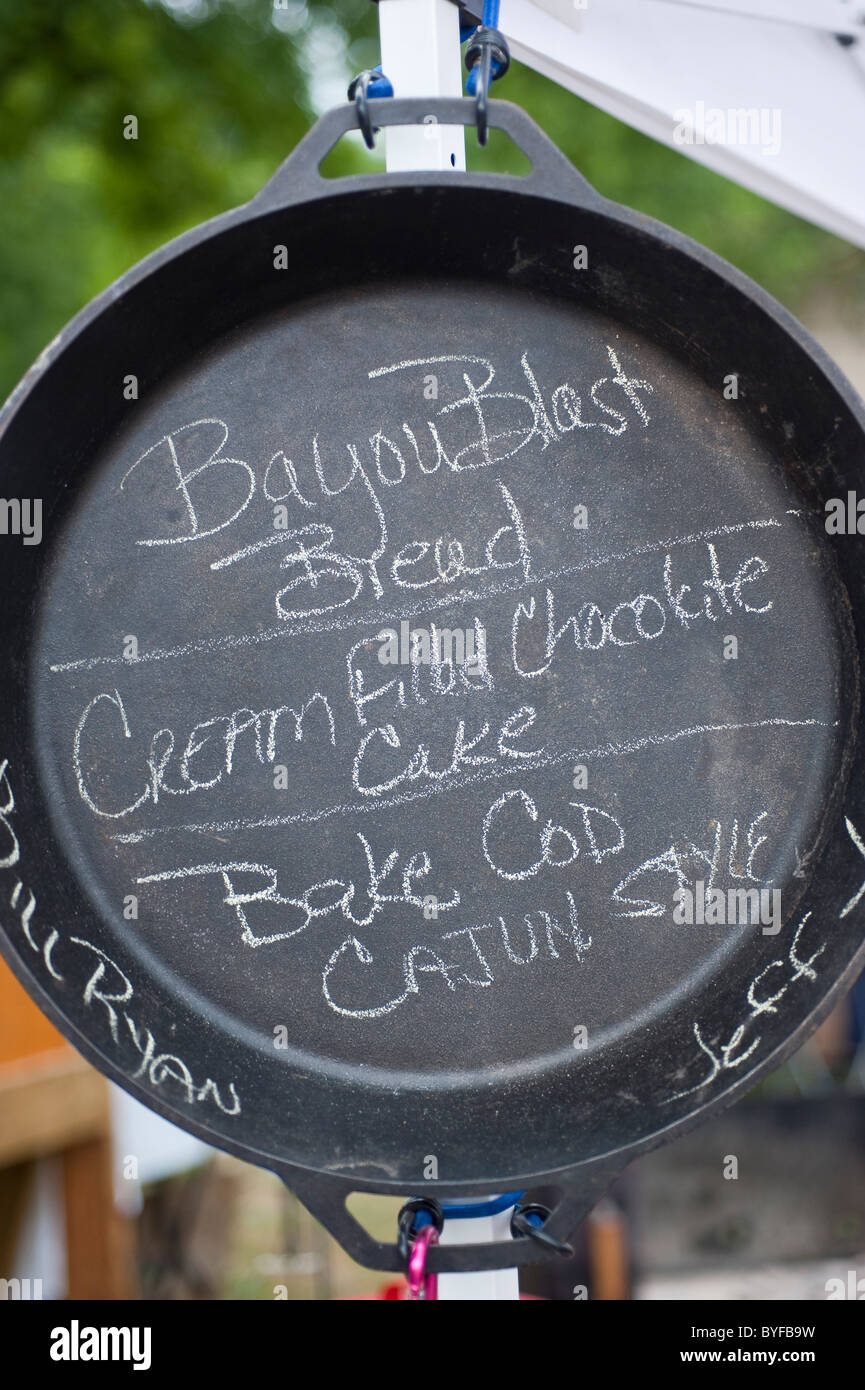 Bayou Blast
Bread
CREAM Filled Chocoklite
Cake
Bake COD
CAJUN STYLE
Bill RYAN
Jeff
alamy
Image ID: BYFB9W
www.alamy.com